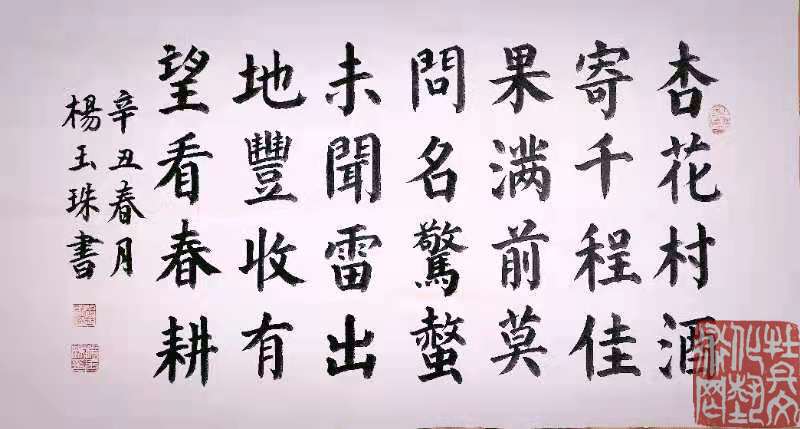 杏花村酒
寄千程佳
果满前莫
問名驚螫
未聞雷出
地豐收有
望看春耕
辛丑春月
楊玉珠書
牡丹文化艺术网